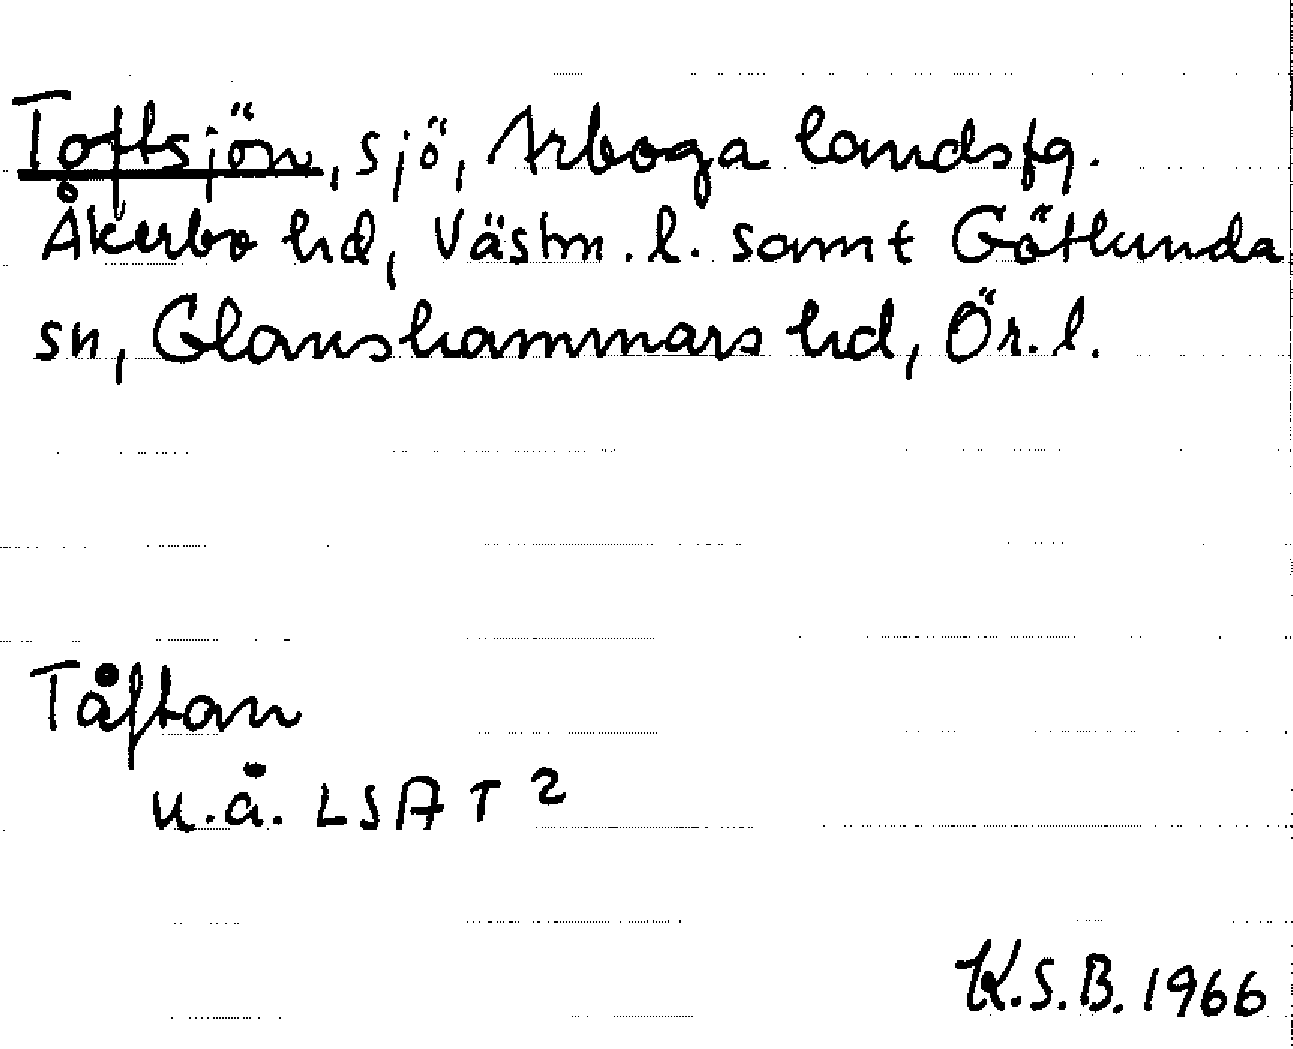 Toftsjön, sjö, Arboga landsfg.
Åkerbo hd, Västm. l. samt Götlunda
sn, Glanshammars hd, Ör. l.
Tåftan
u.å. LSA T 2
K.S.B. 1966